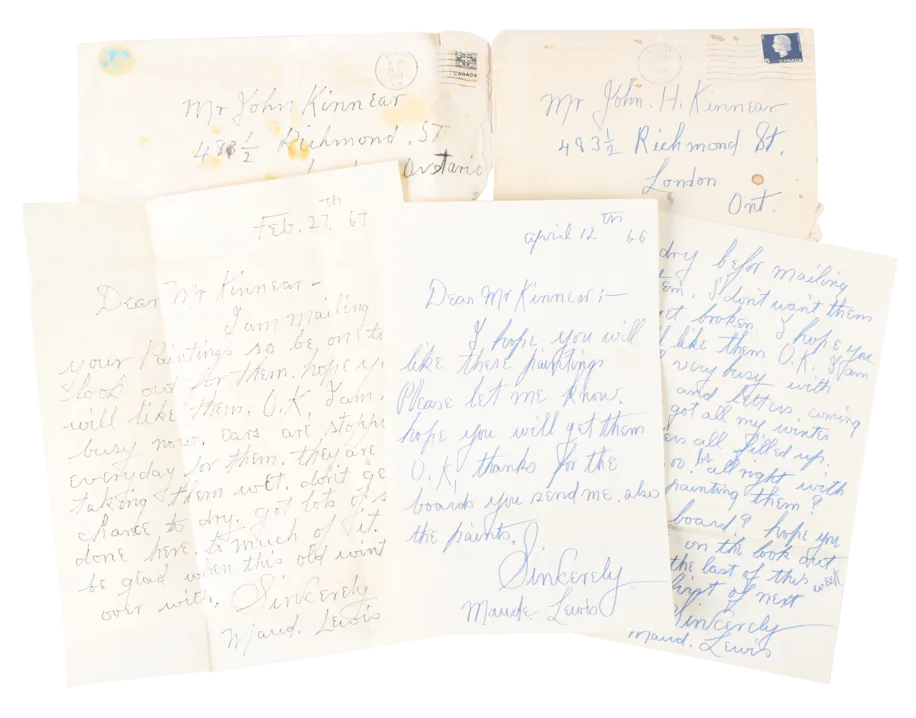 CANADA
Mr John Kinnear
483 1/2 Richmond. ST
Ontario
5
CANADA
Mr John. H. Kinnear
483 1/2 Richmond St.
London
Ont.
Feb. 27.th 67
Dear Mr Kinnear -
I am mailing
your Paintings so be on
look out for them. hope
will like them, O.K. I am
busy now. cars are
everyday for them. they are
taking them wet. don't
chance to dry. got lots of
done here. to much of it.
be glad when this old
over with.
Sincerely
Maud. Lewis
april 12 th 66
Dear Mr Kinnear:-
I hope you will
like these paintings
Please let me know.
hope you will get them
O.K. thanks for the
boards you send me. also
the paints.
Sincerely
Maude Lewis
dry befor mailing
I don't want them
broken. I hope you
like them O.K. I am
very busy with
and letters, coming
got all my winter
all filled up.
all right with
painting them?
board? hope you
on the look out
the last of this week
first of next
Sincerely
Maud. Lewis